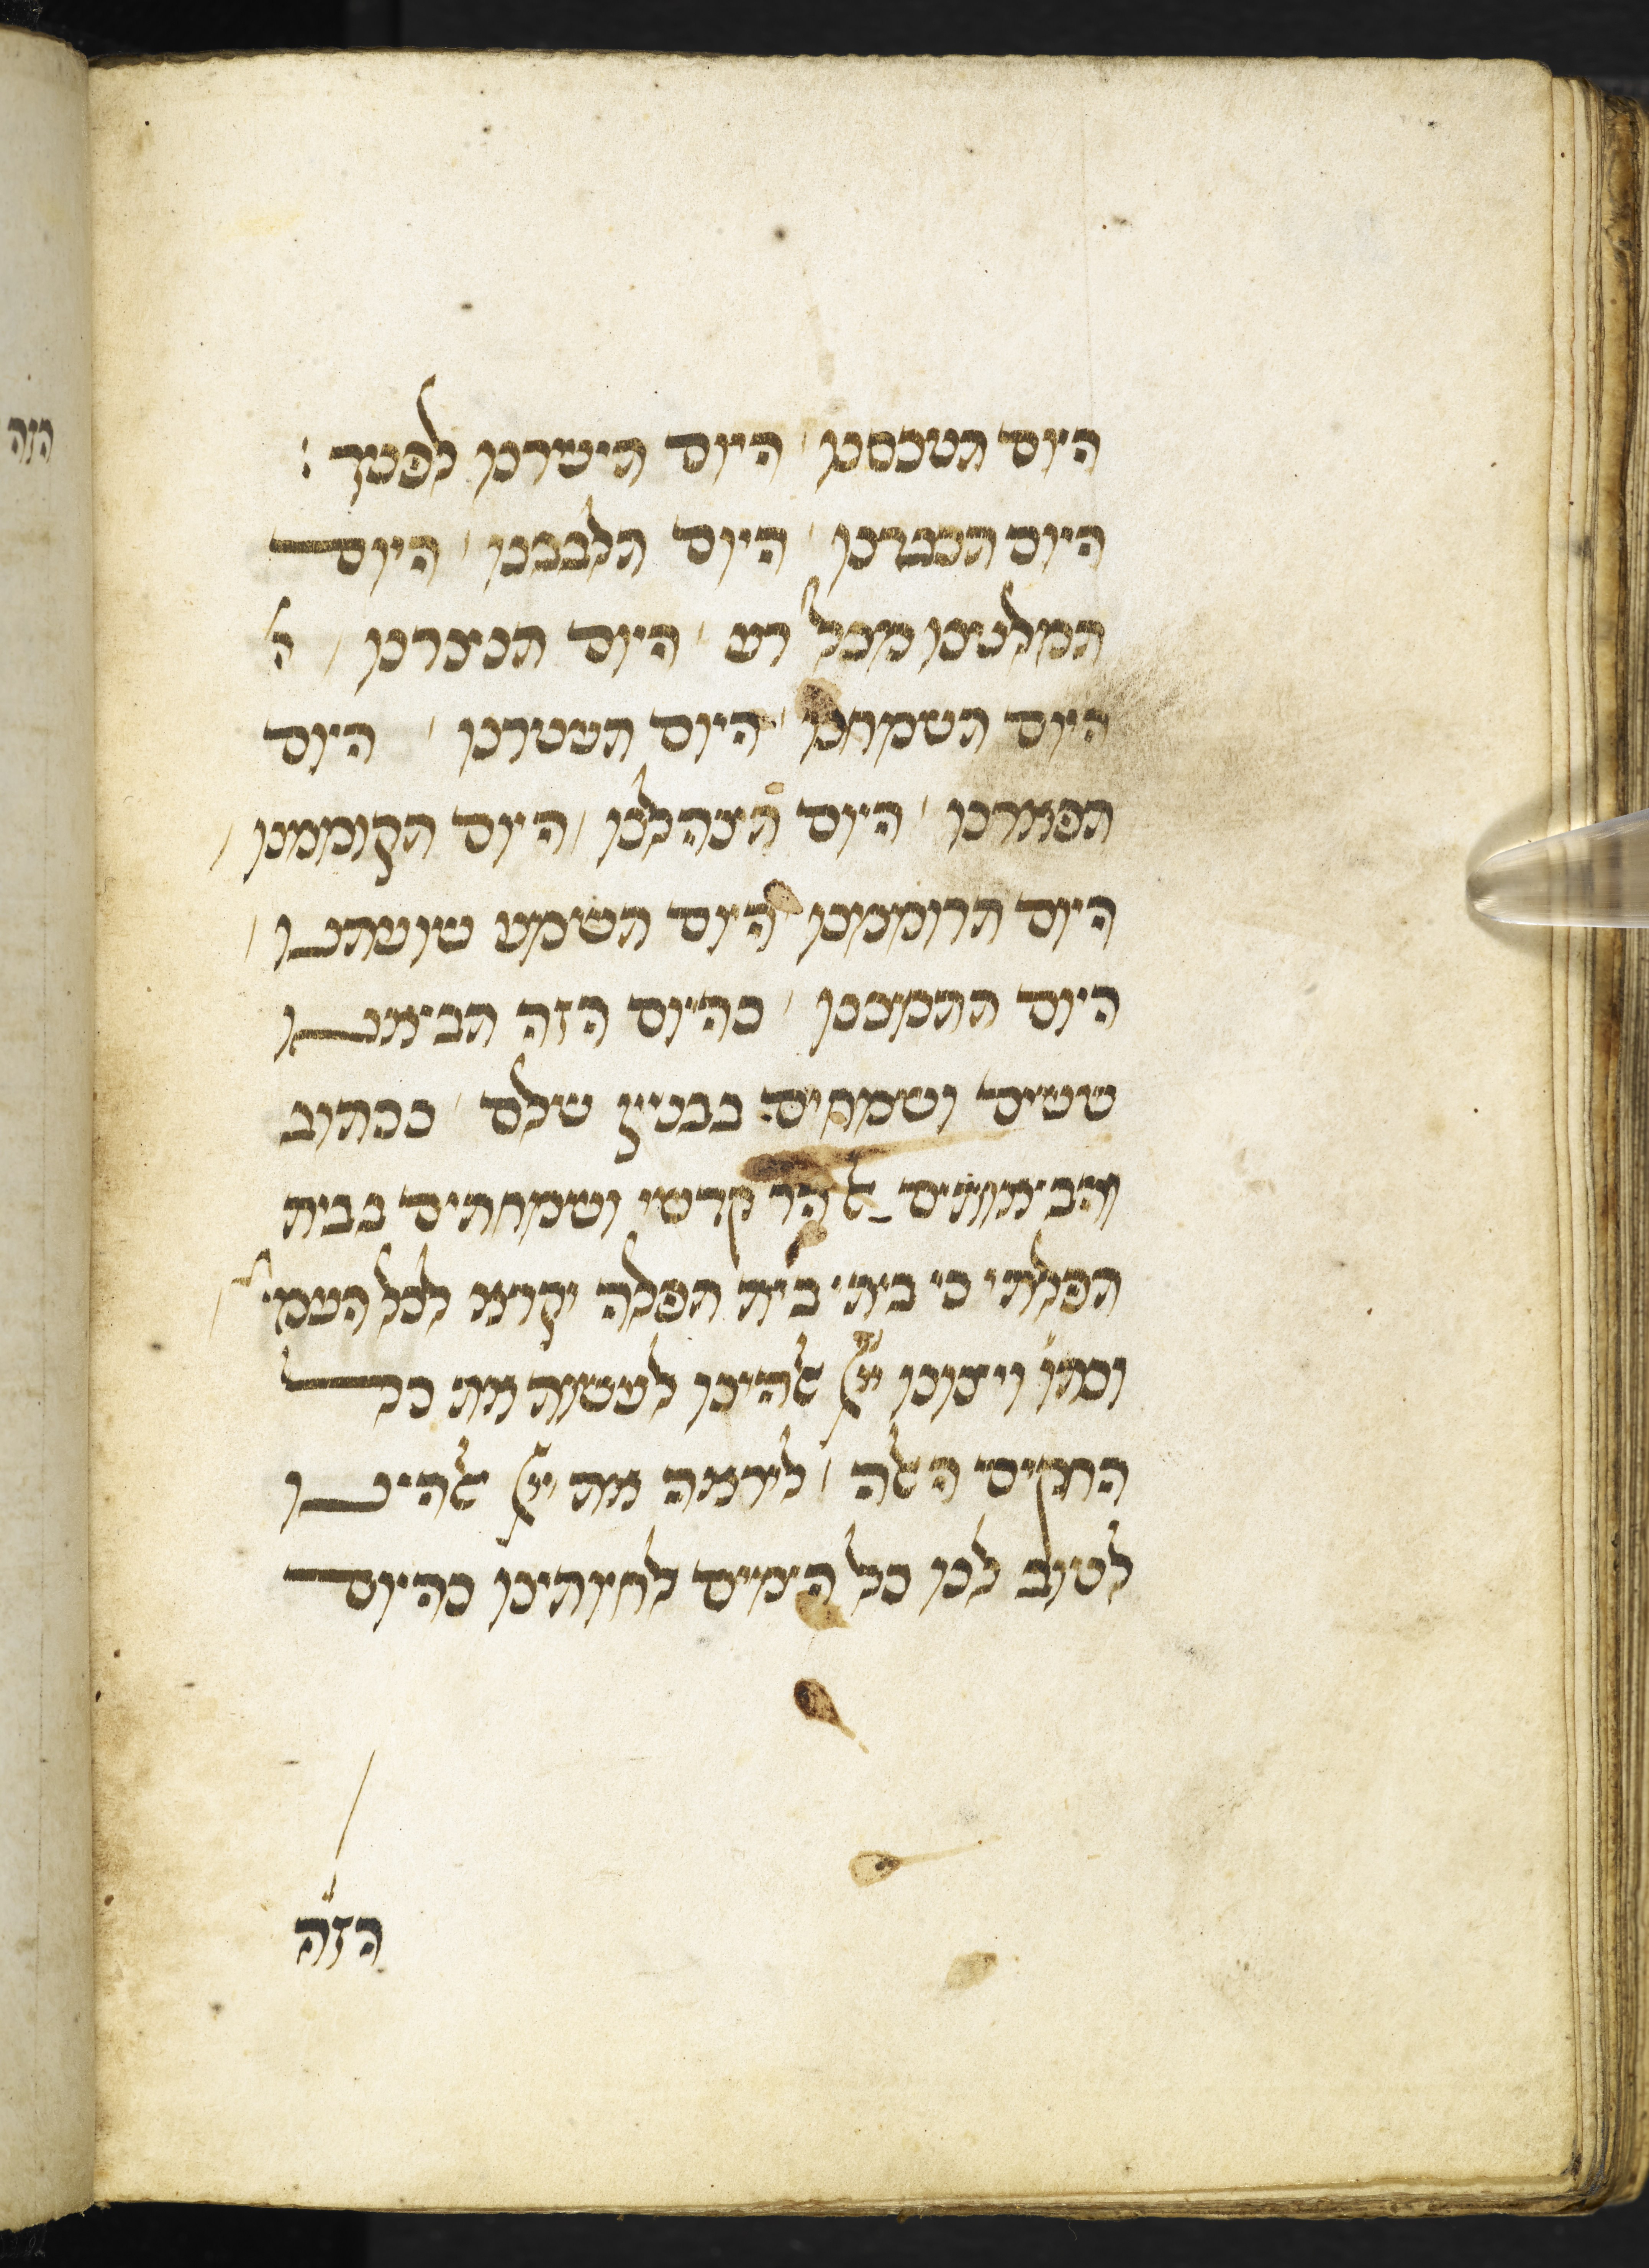 היום תטכסנו / היום תישרנו לפניך :
היום תכבדנו / היום תלבבנו / היום
תמלטנו מכל רע / היום תנצרנו / ה
היום תשמחנו / היום תעטרנו / היום
תפארנו / היום תצהלנו / היום תקוממנו /
היום תרוממנו / היום תשמע שועתנו /
היום תתמכנו / כהיום הזה תביאנו
ששים ושמחים בבנין שלם / ככתוב
והביאותים אל הר קדשי ושמחתים בבית
תפלתי כי ביתי בית תפלה יקרא לכל העמי' /
וכתו' ויצונו יי אלהינו לעשות את כל
החקים האלה / ליראה את יי אלהינו
לטוב לנו כל הימים לחיותינו כהיום
הזה
הזה